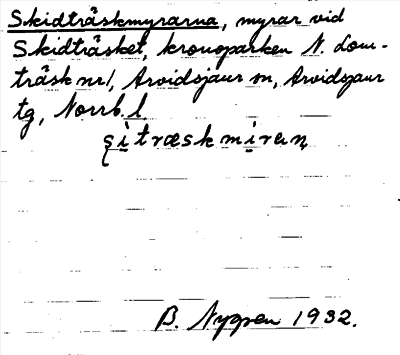 Skidträskmyrarna, myrar vid
Skidträsket, kronoparken N. Lom-
träsk nr 1, Arvidsjaur sn, Arvidsjaur
tg, Norrb. l.
ʂitræskmiran
B. Nygren 1932.